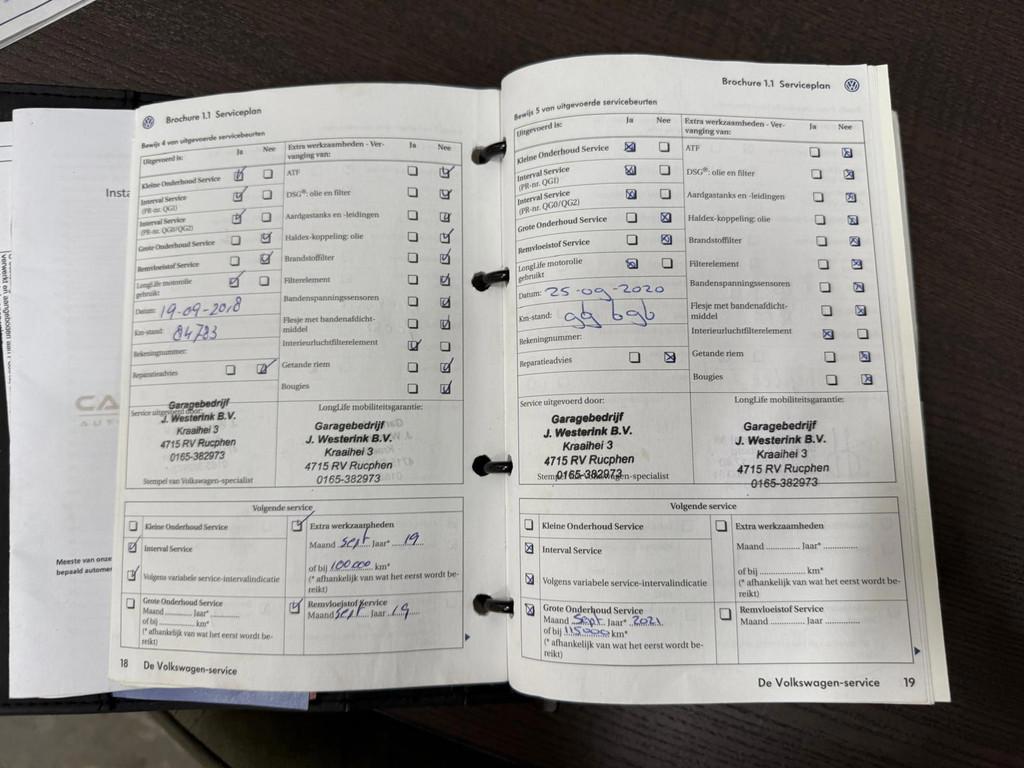 Insta
CA
AUT
Meeste van onze
bepaald automer
Brochure 1.1 Serviceplan
Bewijs 4 van uitgevoerde servicebeurten
Uitgevoerd is:
Ja
Nee
Kleine Onderhoud Service
Interval Service
(PR-nr. QG1)
Interval Service
(PR-nr. QG0/QG2)
Grote Onderhoud Service
Remvloeistof Service
LongLife motorolie
gebruikt:
Datum: 19-09-2018
Km-stand: 84783
Rekeningnummer:
Reparatieadvies
Extra werkzaamheden - Ver-
vanging van:
Ja
Nee
ATF
DSG®: olie en filter
Aardgastanks en -leidingen
Haldex-koppeling: olie
Brandstoffilter
Filterelement
Bandenspanningssensoren
Flesje met bandenafdicht-
middel
Interieurluchtfilterelement
Getande riem
Bougies
Service uitgevoerd door:
Garagebedrijf
J. Westerink B.V.
Kraaihei 3
4715 RV Rucphen
0165-382973
Stempel van Volkswagen-specialist
LongLife mobiliteitsgarantie:
Garagebedrijf
J. Westerink B.V.
Kraaihei 3
4715 RV Rucphen
0165-382973
Volgende service
Kleine Onderhoud Service
Interval Service
Volgens variabele service-intervalindicatie
Grote Onderhoud Service
Maand .......... Jaar* ..........
of bij .......... km*
(* afhankelijk van wat het eerst wordt be-
reikt)
Extra werkzaamheden
Maand sept Jaar* 19
of bij 100000 km*
(* afhankelijk van wat het eerst wordt be-
reikt)
Remvloeistof Service
Maand sept Jaar 19
18 De Volkswagen-service
Brochure 1.1 Serviceplan
Bewijs 5 van uitgevoerde servicebeurten
Uitgevoerd is:
Ja
Nee
Kleine Onderhoud Service
Interval Service
(PR-nr. QG1)
Interval Service
(PR-nr. QG0/QG2)
Grote Onderhoud Service
Remvloeistof Service
LongLife motorolie
gebruikt
Datum: 25-09-2020
Km-stand:
Rekeningnummer:
Reparatieadvies
Extra werkzaamheden - Ver-
vanging van:
Ja
Nee
ATF
DSG®: olie en filter
Aardgastanks en -leidingen
Haldex-koppeling: olie
Brandstoffilter
Filterelement
Bandenspanningssensoren
Flesje met bandenafdicht-
middel
Interieurluchtfilterelement
Getande riem
Bougies
Service uitgevoerd door:
Garagebedrijf
J. Westerink B.V.
Kraaihei 3
4715 RV Rucphen
0165-382973
Stempel van Volkswagen-specialist
LongLife mobiliteitsgarantie:
Garagebedrijf
J. Westerink B.V.
Kraaihei 3
4715 RV Rucphen
0165-382973
Volgende service
Kleine Onderhoud Service
Interval Service
Volgens variabele service-intervalindicatie
Grote Onderhoud Service
Maand Sept. Jaar* 2021
of bij 115000 km*
(* afhankelijk van wat het eerst wordt be-
reikt)
Extra werkzaamheden
Maand .......... Jaar* ..........
of bij .......... km*
(* afhankelijk van wat het eerst wordt be-
reikt)
Remvloeistof Service
Maand .......... Jaar ..........
De Volkswagen-service 19